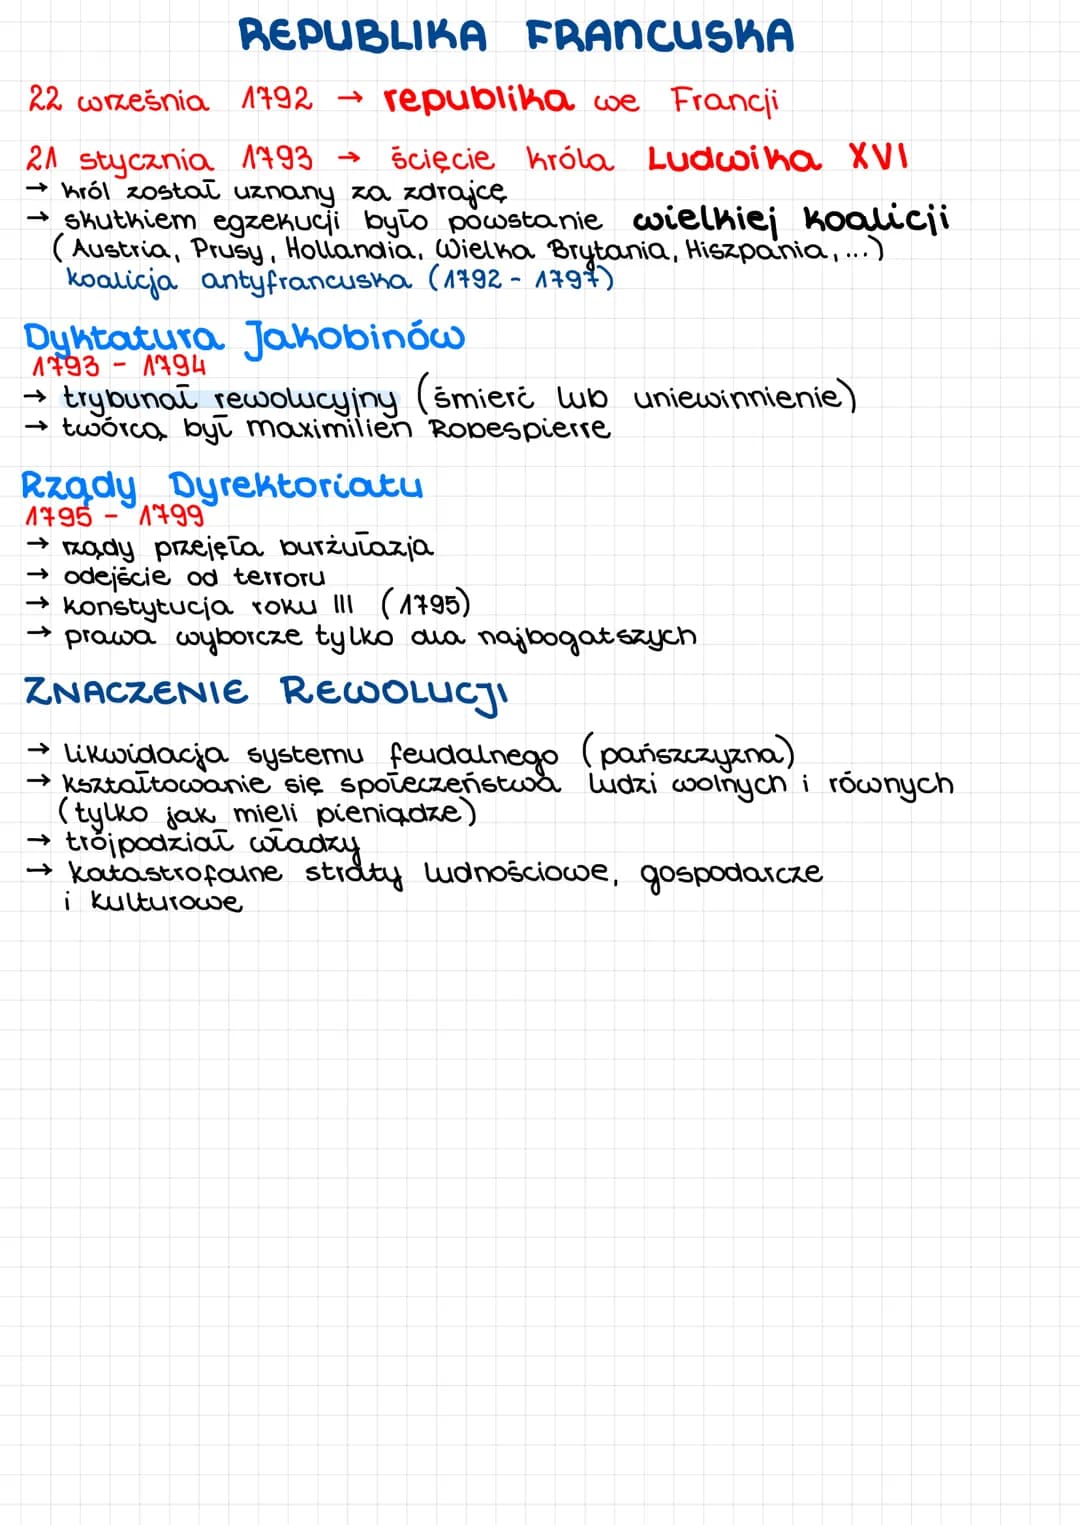 REPUBLIKA FRANCUSKA
22 września 1792 → republika we Francji
21 stycznia 1793 → ścięcie króla Ludwika XVI
→ król został uznany za zdrajcę
→ skutkiem egzekucji było powstanie wielkiej koalicji
(Austria, Prusy, Hollandia, Wielka Brytania, Hiszpania, ...)
koalicja antyfrancuska (1792 - 1797)
Dyktatura Jakobinów
1793 - 1794
→ trybunał rewolucyjny (śmierć lub uniewinnienie)
→ twórcą był maximilien Robespierre
Rządy Dyrektoriatu
1795 - 1799
→ rządy przejęła burżułazja
→ odejście od terroru
→ konstytucja roku III (1795)
→ prawa wyborcze tylko dla najbogatszych
ZNACZENIE REWOLUCJI
→ likwidacja systemu feudalnego (pańszczyzna)
→ kształtowanie się społeczeństwa ludzi wolnych i równych
(tylko jak mieli pieniądze)
→ trójpodział władzy
→ katastrofalne straty ludnościowe, gospodarcze
i kulturowe